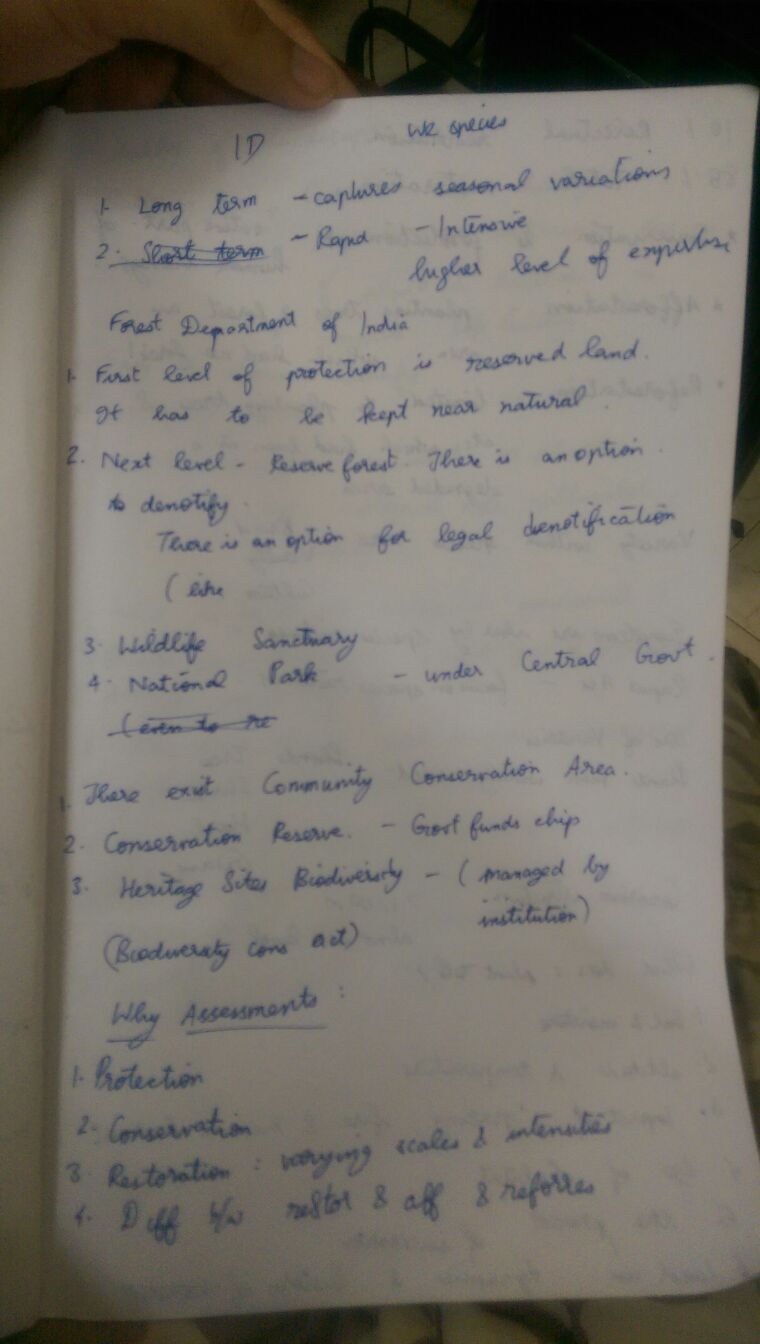 ID
species
1. Long term - captures seasonal variations
2. Short term - Rapid - Intensive
higher level of expertise
Forest Department of India
1. First level of protection is reserved land.
It has to be kept near natural.
2. Next level - Reserve forest. There is an option
to denotify.
There is an option for legal denotification
(like
3. Wildlife Sanctuary
4. National Park - under Central Govt.
(even to re
1. There exist Community Conservation Area.
2. Conservation Reserve. - Govt funds chip
3. Heritage Sites Biodiversity - (managed by
institution)
(Biodiversity cons act)
Why Assessments :
1. Protection
2. Conservation
3. Restoration : varying scales & intensities
4. Diff b/w restor & aff & reforres